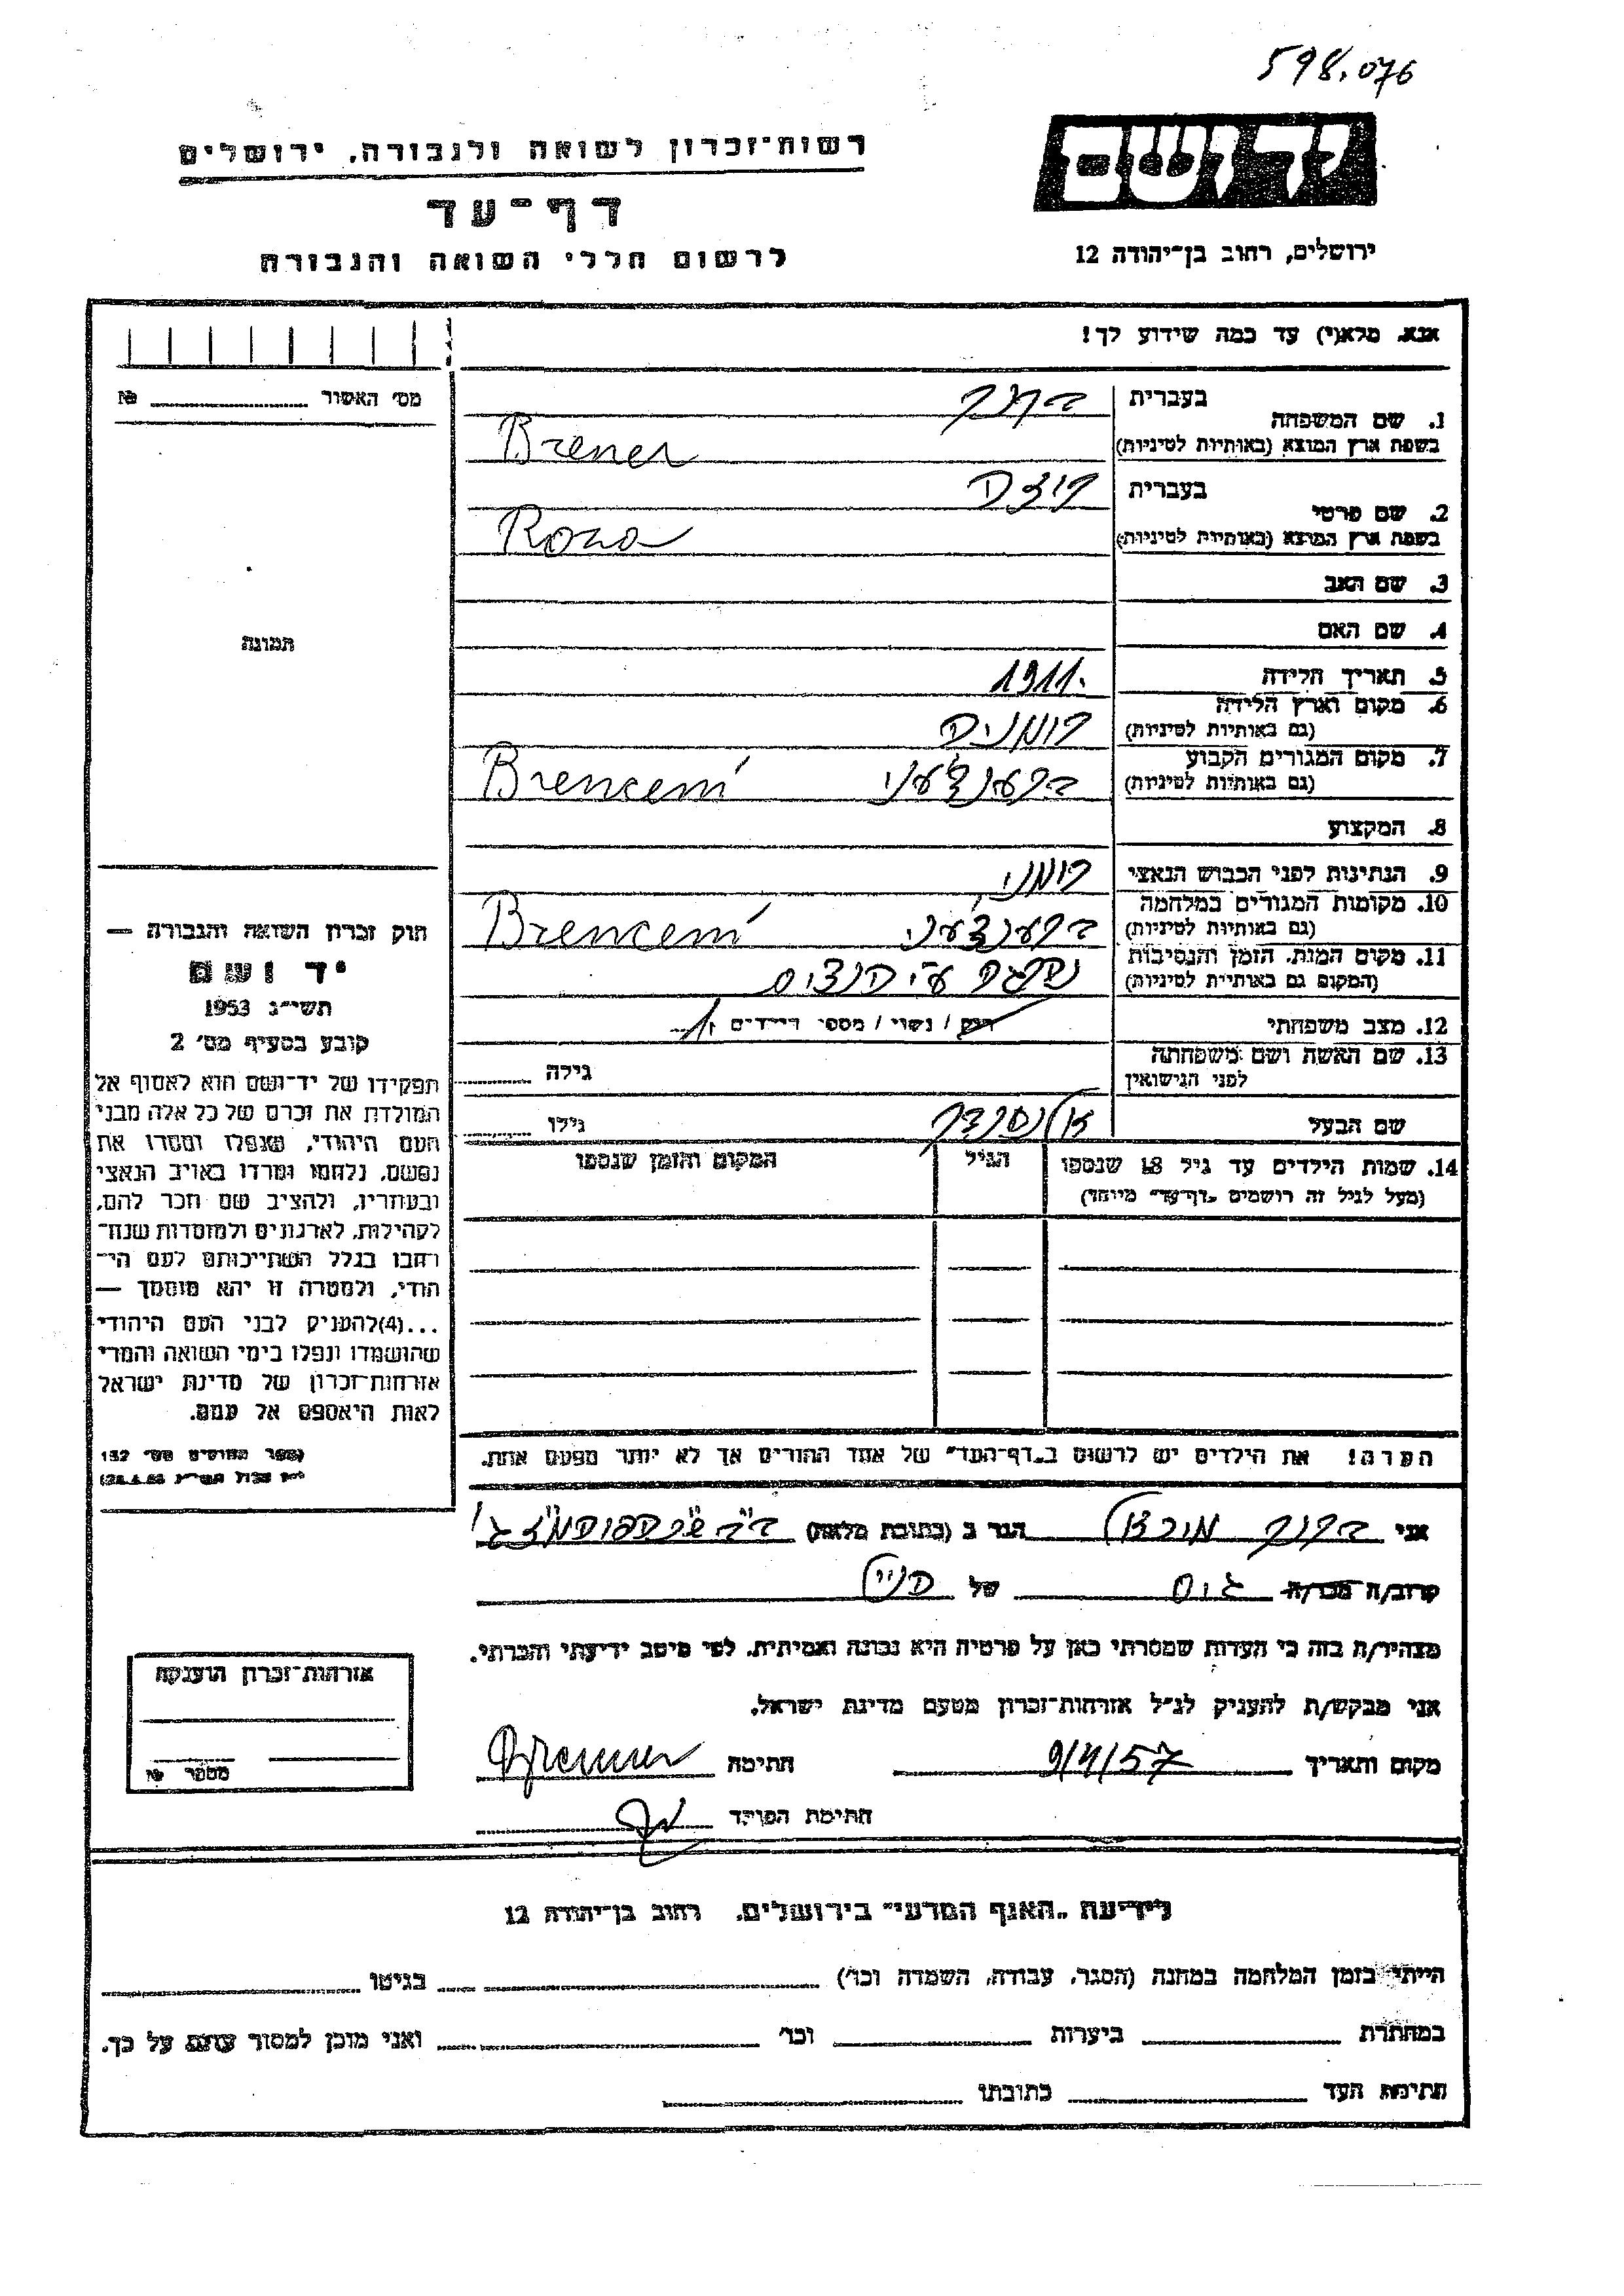 598.076
יד ושם
רשות־זכרון לשואה ולגבורה, ירושלים
דף־עד
לרשום חללי השואה והגבורה
ירושלים, רחוב בן־יהודה 12
אנא, מלא(י) עד כמה שידוע לך!
מס׳ האשור № 
1. שם המשפחה
בעברית ברנר
בשפת ארץ המוצא (באותיות לטיניות) Brener
2. שם פרטי
בעברית רוזה
בשפת ארץ המוצא (באותיות לטיניות) Roza
3. שם האב
4. שם האם
5. תאריך הלידה 1911.
6. מקום וארץ הלידה
(גם באותיות לטיניות) רומניה
7. מקום המגורים הקבוע
(גם באותיות לטיניות) Brenceni
8. המקצוע
9. הנתינות לפני הכבוש הנאצי רומני
10. מקומות המגורים במלחמה
(גם באותיות לטיניות) Brenceni
11. מקום המות, הזמן והנסיבות
(המקום גם באותיות לטיניות) נהרגה ע״י הנצים
12. מצב משפחתי רווק / נשוי / מספר הילדים
13. שם האשה ושם משפחתה
לפני הנישואין גילה
שם הבעל גילו
תמונה
14. שמות הילדים עד גיל 18 שנספו
(מעל לגיל זה רושמים „דף־עד״ מיוחד)
הגיל
המקום והזמן שנספו
הערה! את הילדים יש לרשום ב„דף־העד״ של אחד ההורים אך לא יותר מפעם אחת.
חוק זכרון השואה והגבורה —
יד ושם
תשי״ג 1953
קובע בסעיף מס׳ 2
תפקידו של יד־ושם הוא לאסוף אל
המולדת את זכרם של כל אלה מבני
העם היהודי, שנפלו ומסרו את
נפשם, נלחמו ומרדו באויב הנאצי
ובעוזריו, ולהציב שם וזכר להם,
לקהילות, לארגונים ולמוסדות שנח־
רבו בגלל השתייכותם לעם הי־
הודי, ולמטרה זו יהא מוסמך —
...(4)להעניק לבני העם היהודי
שהושמדו ונפלו בימי השואה והמרי
אזרחות־זכרון של מדינת ישראל
לאות היאספם אל עמם.
אני ברנר הגר ב (כתובת מלאה)
קרוב/ה מכר/ה של
מצהיר/ה בזה כי העדות שמסרתי כאן על פרטיה היא נכונה ואמיתית, לפי מיטב ידיעתי והכרתי.
אני מבקש/ת להעניק לנ״ל אזרחות־זכרון מטעם מדינת ישראל.
מקום ותאריך 9/4/57 חתימה Brenner
חתימת הפוקד
אזרחות־זכרון הוענקה
מספר №
לידיעת „האגף המדעי״ בירושלים, רחוב בן־יהודה 12
הייתי בזמן המלחמה במחנה (הסגר, עבודה, השמדה וכו׳) בגיטו
במחתרת ביערות וכו׳ ואני מוכן למסור עדות על כך.
חתימת העד כתובתו